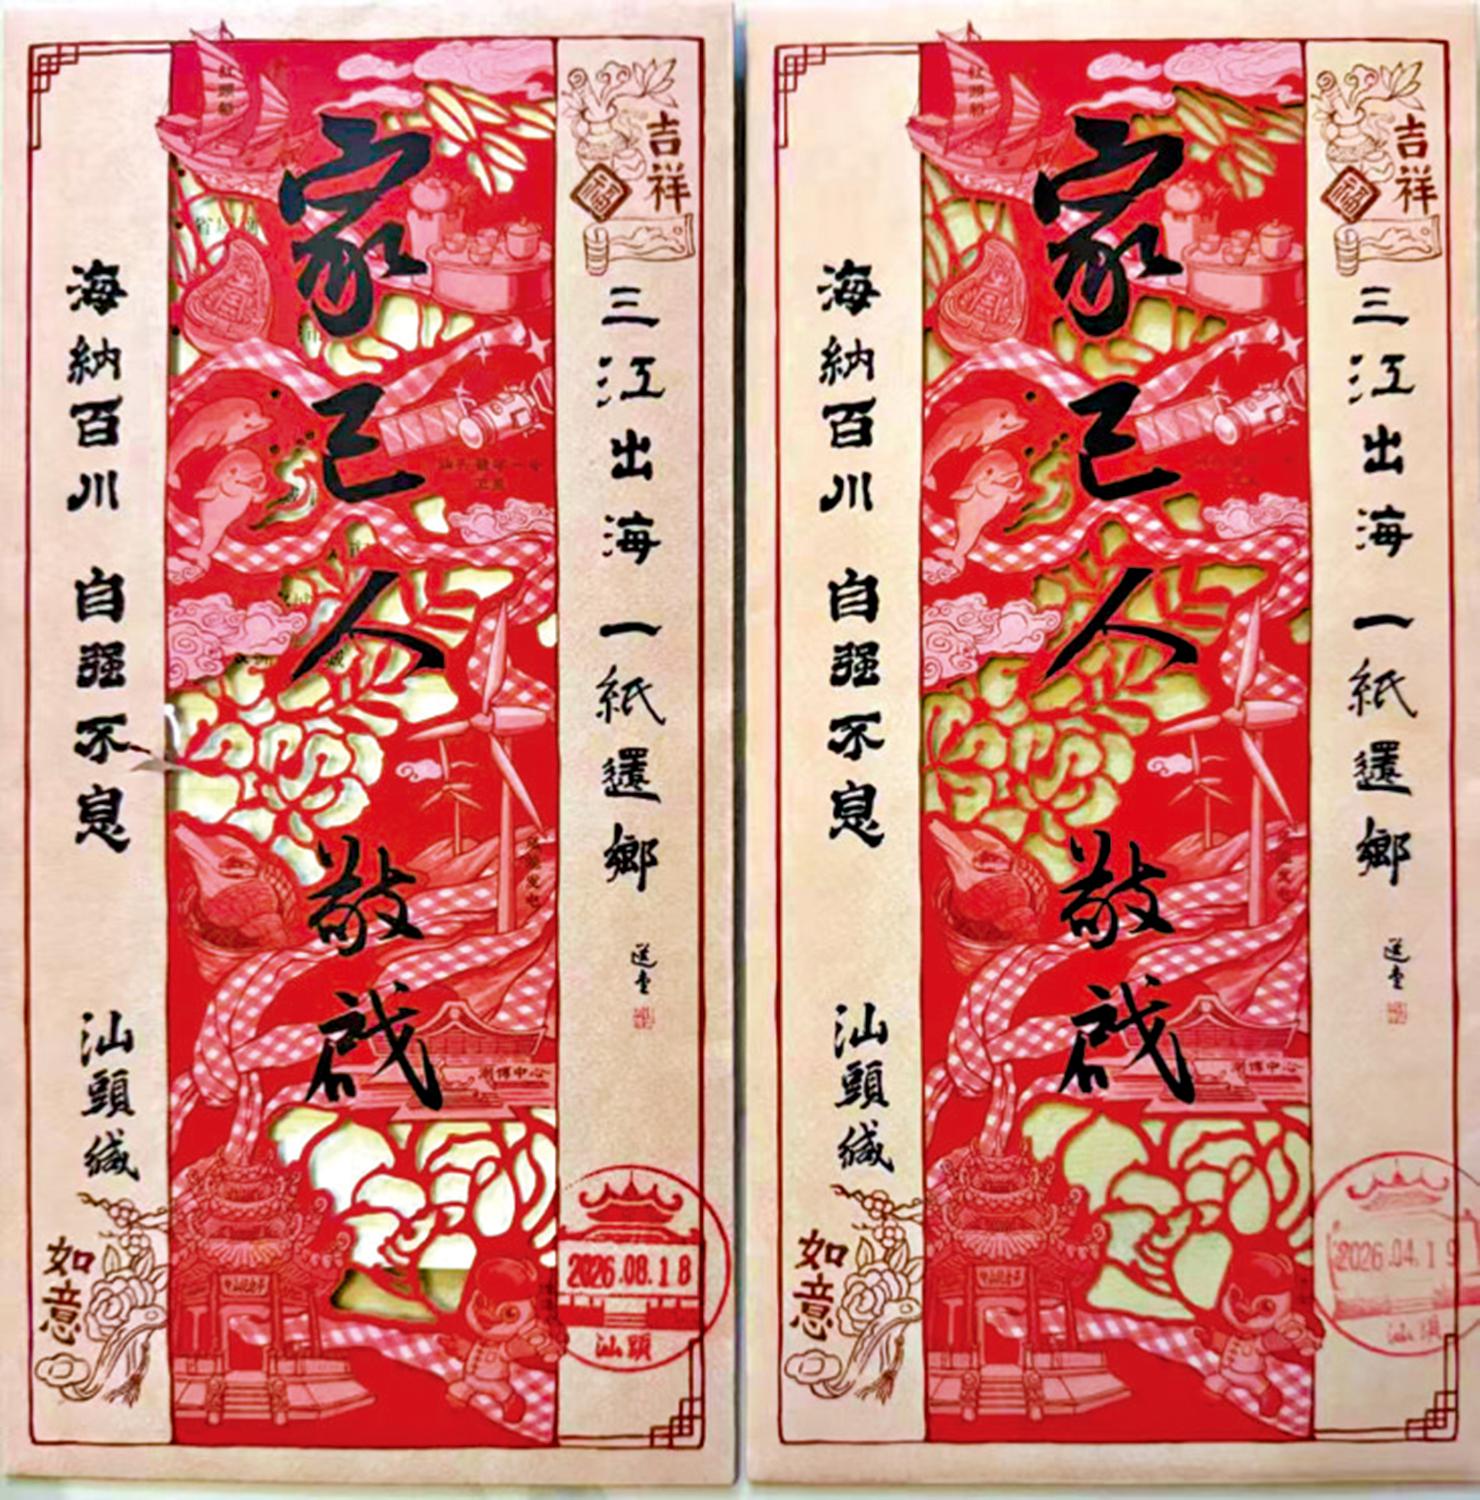 吉祥
三江出海 一紙還鄉
家己人敬啟
海納百川 自强不息
汕頭緘
如意
紅頭船
潮博中心
2026.08.18
汕頭
吉祥
三江出海 一紙還鄉
家己人敬啟
海納百川 自强不息
汕頭緘
如意
紅頭船
潮博中心
2026.04.19
汕頭